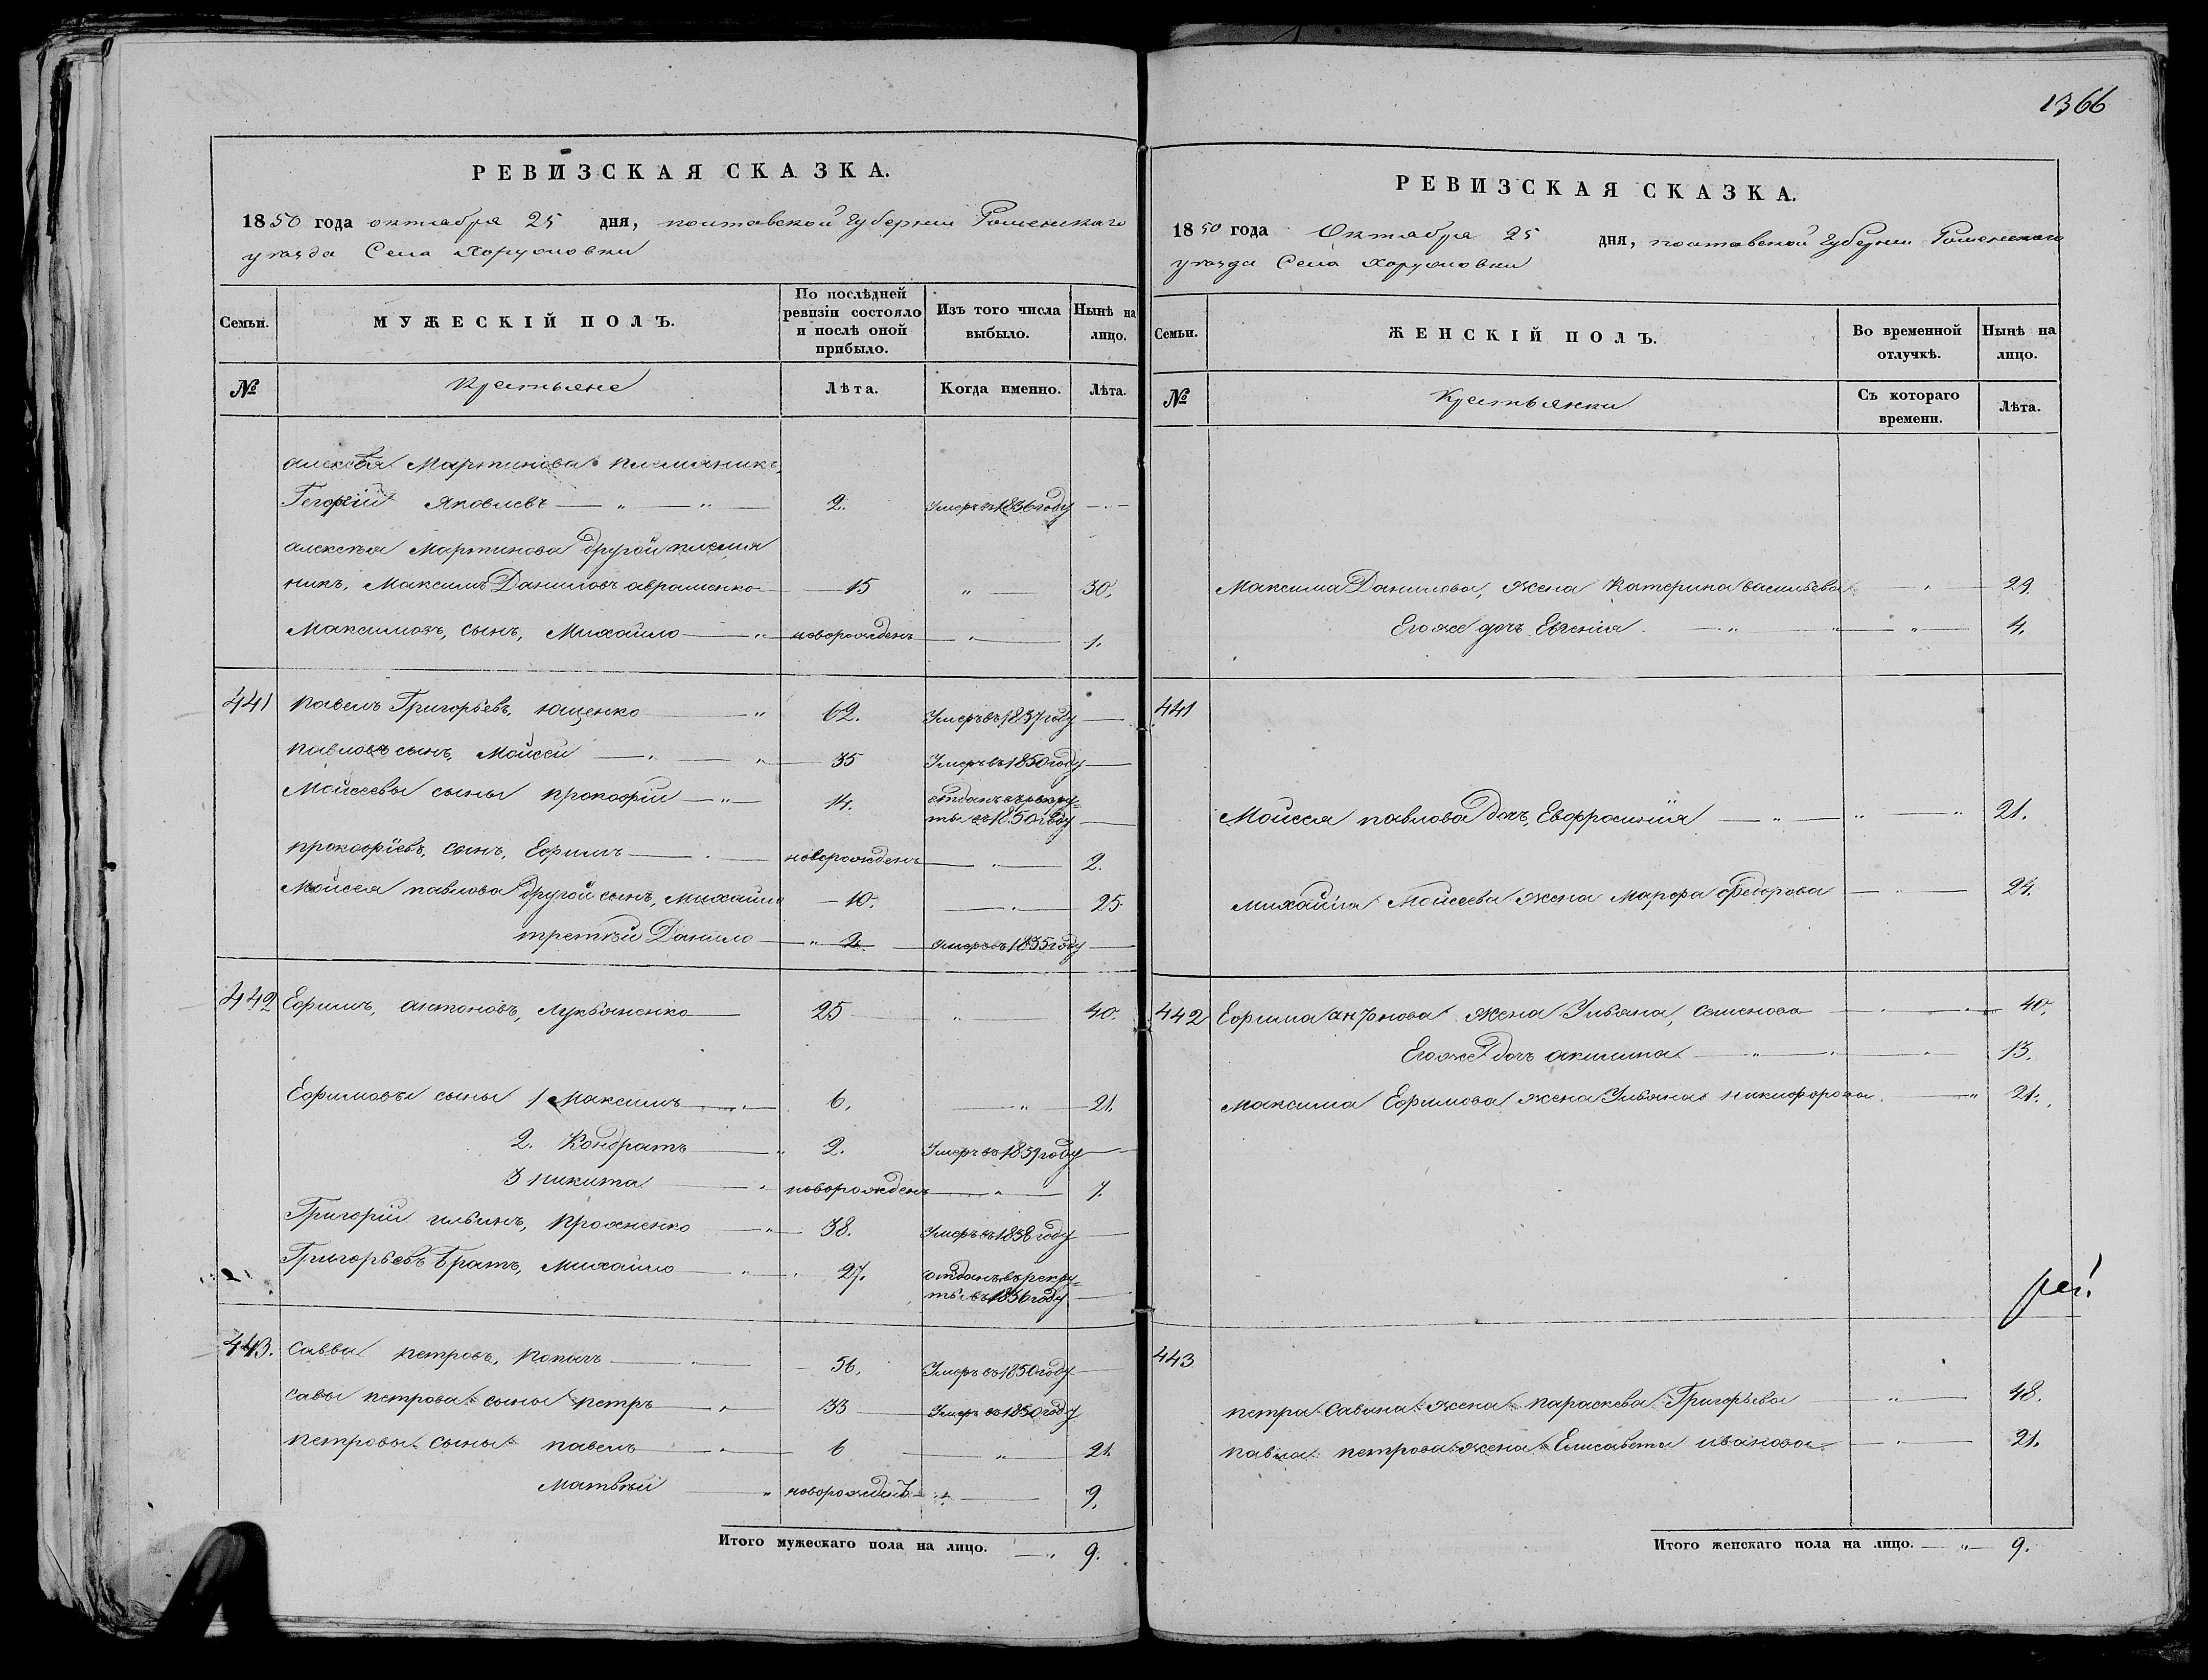 1366
РЕВИЗСКАЯ СКАЗКА.
1850 года октября 25 дня, полтавской губернии Роменскаго
уезда Села Хоружовки
Семьи. МУЖЕСКІЙ ПОЛЪ. По послѣдней ревизіи состояло и послѣ оной прибыло. Изъ того числа выбыло. Нынѣ на лицо.
№ Крестьяне Лѣта. Когда именно. Лѣта.
алексѣя Мартинова племяникъ,
Гегоргій Яковлевъ 2. Умеръ въ 1836 году
алексѣя Мартинова другой племя
никъ, Максимъ Даниловъ авраменко 15 " 30.
Максимовъ, сынъ, Михайло новорожденъ " 1.
441 павелъ Григорьевъ, ющенко 62. Умеръ въ 1837 году
павловъ сынъ, Мойсей 35 Умеръ въ 1850 году
Мойсеевы сыны прокофій 14. отданъ въ рекру=
ты въ 1850 году
прокофіевъ, сынъ, Ефимъ новорожденъ 2.
Мойсея павлова другой сынъ, Михайло 10. 25
третій Данило 2 умеръ въ 1835 году
442 Ефимъ, антоновъ, Лукьяненко 25 " 40.
Ефимовы сыны 1 Максимъ 6. " 21.
2. Кондратъ 2. Умеръ въ 1839 году
3 никита новорожденъ " 7.
Григорій ильинъ, прохненко 38. Умеръ въ 1838 году
Григорьевъ братъ, Михайло 27. отданъ въ рекру=
ты въ 1836 году
443. Савва петровъ, копачъ 56. Умеръ въ 1850 году
савы петрова сыны петръ 33 Умеръ въ 1850 году
петровы сыны павелъ 6 " 21.
Матвѣй новорожденъ 9.
Итого мужескаго пола на лицо. 9.
РЕВИЗСКАЯ СКАЗКА.
1850 года Октября 25 дня, полтавской губернии Роменскаго
уезда Села Хоружовки
Семьи. ЖЕНСКІЙ ПОЛЪ. Во временной отлучкѣ. Нынѣ на лицо.
№ Крестьянки Съ котораго времени. Лѣта.
Максима Данилова, жена Катерина васильева 29.
Егоже дочь Евгенія 4.
441
Мойсея павлова дочъ, Евфросинія 21.
михайла Мойсеева жена Марфа федорова 24.
442 Ефима антонова жена Ульяна, семенова 40.
Егоже дочъ акилина 13.
Максима Ефимова жена Ульяна никифорова 21.
443
петра Савина жена параскева Григорьева 48.
павла петрова жена Елисавета иванова 21.
Итого женскаго пола на лицо. 9.